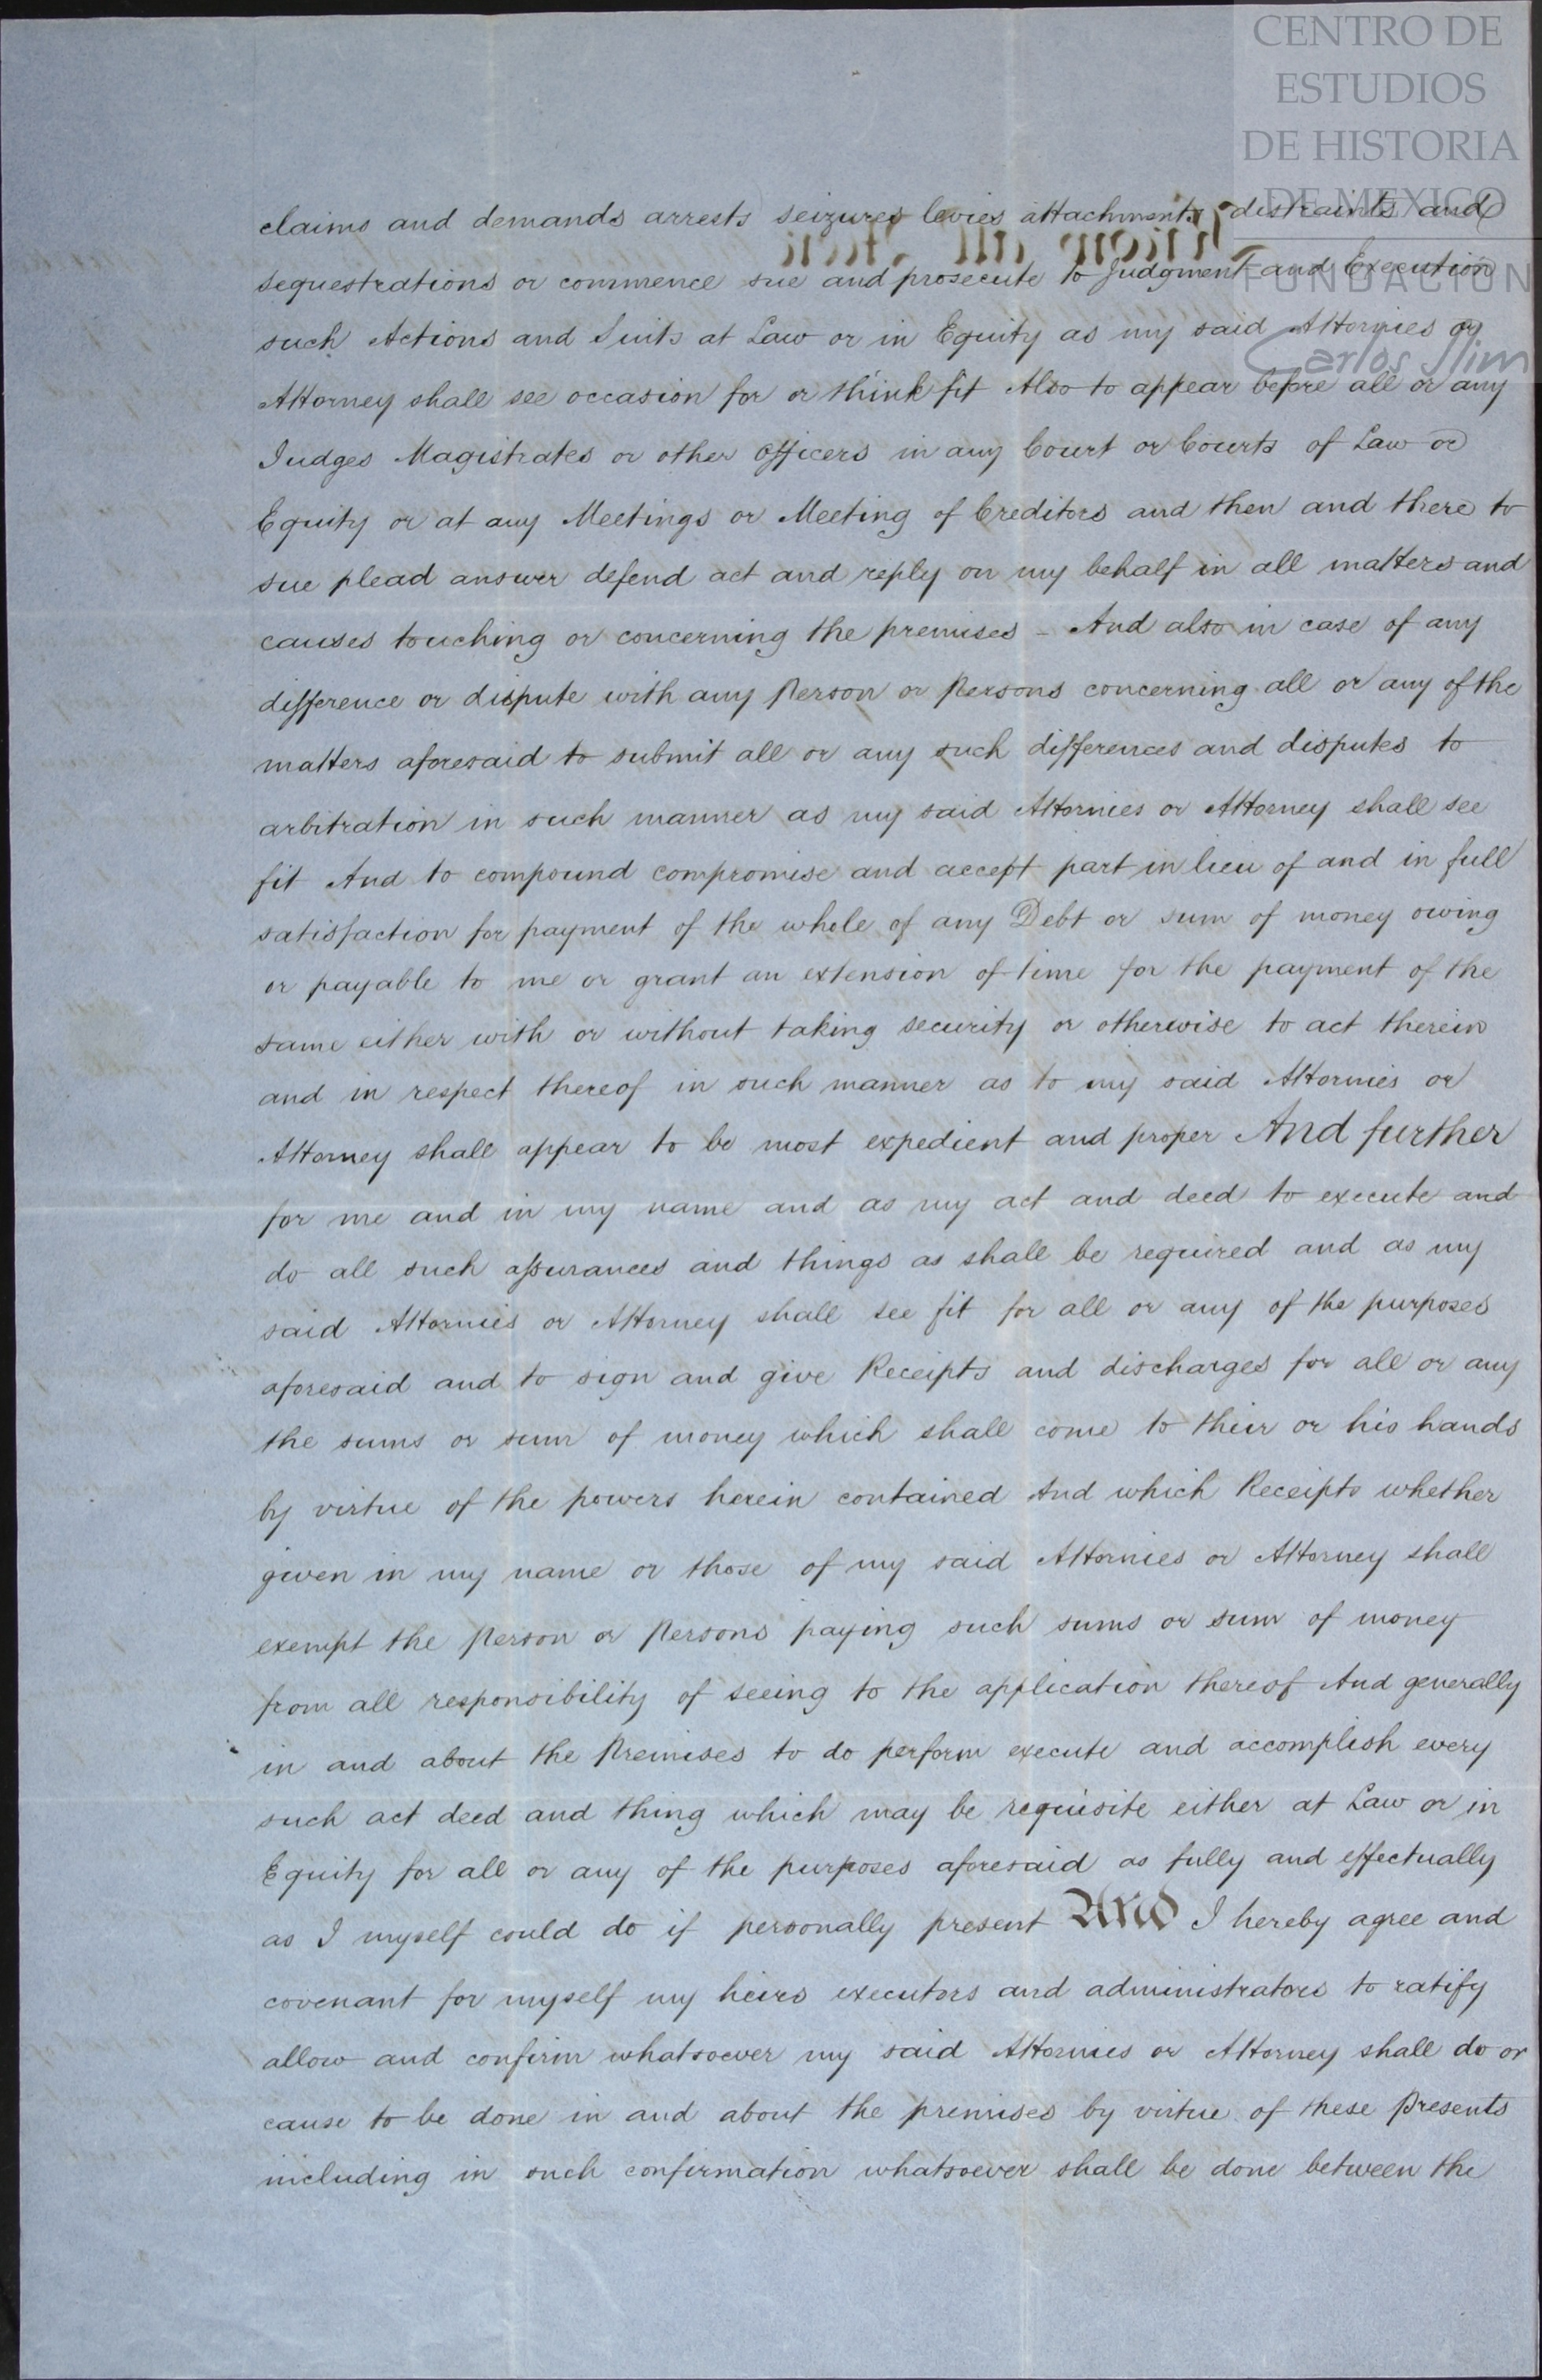 CENTRO DE
ESTUDIOS
DE HISTORIA
DE MEXICO
FUNDACIÓN
Carlos Slim
claims and demands arrests seizures levies attachments distraints and
sequestrations or commence sue and prosecute to Judgment and Execution
such Actions and Suits at Law or in Equity as my said Attornies or
Attorney shall see occasion for or think fit Also to appear before all or any
Judges Magistrates or other Officers in any Court or Courts of Law or
Equity or at any Meetings or Meeting of Creditors and then and there to
sue plead answer defend act and reply on my behalf in all matters and
causes touching or concerning the premises - And also in case of any
difference or dispute with any Person or Persons concerning all or any of the
matters aforesaid to submit all or any such differences and disputes to
arbitration in such manner as my said Attornies or Attorney shall see
fit And to compound compromise and accept part in lieu of and in full
satisfaction for payment of the whole of any Debt or sum of money owing
or payable to me or grant an extension of time for the payment of the
same either with or without taking security or otherwise to act therein
and in respect thereof in such manner as to my said Attornies or
Attorney shall appear to be most expedient and proper And further
for me and in my name and as my act and deed to execute and
do all such assurances and things as shall be required and as my
said Attornies or Attorney shall see fit for all or any of the purposes
aforesaid and to sign and give Receipts and discharges for all or any
the sums or sum of money which shall come to their or his hands
by virtue of the powers herein contained And which Receipts whether
given in my name or those of my said Attornies or Attorney shall
exempt the Person or Persons paying such sums or sum of money
from all responsibility of seeing to the application thereof And generally
in and about the Premises to do perform execute and accomplish every
such act deed and thing which may be requisite either at Law or in
Equity for all or any of the purposes aforesaid as fully and effectually
as I myself could do if personally present And I hereby agree and
covenant for myself my heirs executors and administrators to ratify
allow and confirm whatsoever my said Attornies or Attorney shall do or
cause to be done in and about the premises by virtue of these Presents
including in such confirmation whatsoever shall be done between the